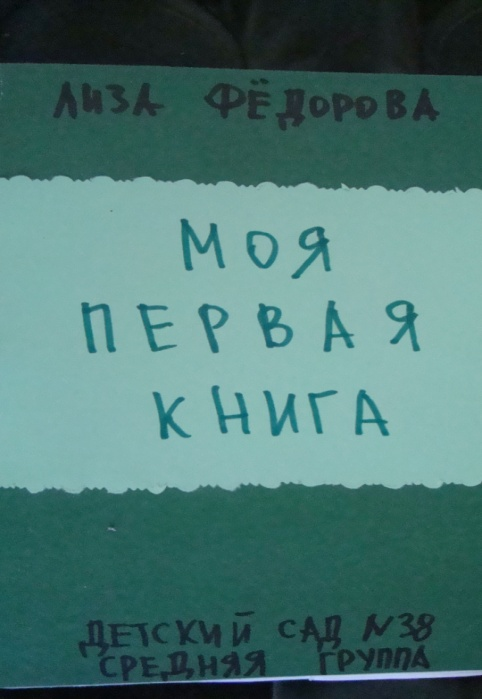 ЛИЗА ФЁДОРОВА
МОЯ
ПЕРВАЯ
КНИГА
ДЕТСКИЙ САД N38
СРЕДНЯЯ ГРУППА